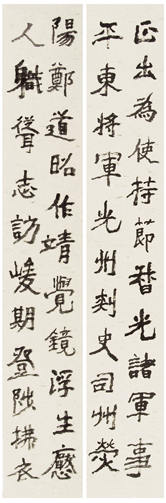 正出為使持節督光諸軍事
平東將軍光州刺史司州熒
陽鄭道昭作靖覺鏡浮生懕
人職聳志訪峻期登陟拂衣